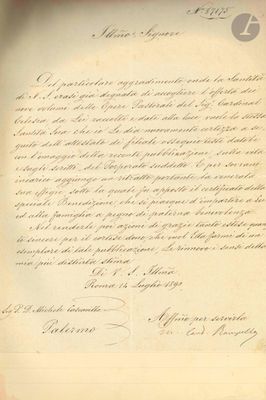 N.° 87175
Illmo Signore
Del particolare aggradimento onde la Santità
di N. S. erasi già degnata di accogliere l'offerta dei
nove volumi delle Opere Pastorali del Sig. Cardinal
Celesia, da Lei raccolte e dati alla luce, vuole la stessa
Santità Sua che io Le dia novamente certezza a se-
guito dell'attestato di filiale ossequio
un omaggio della recente pubblicazione, sulla vita
e sugli scritti, del Porporato suddetto. E per
aggiungo un ritratto portante la venerata
sua effigie, sotto la quale fu apposto il certificato della
speciale Benedizione, che si piacque d'impartire a Lei
ed alla famiglia a pegno di paterna benevolenza.
Nel renderle poi azioni de grazie tanto estese quan-
to sincere per il cortese dono, che volle Ella farmi di un e-
semplare di tale pubblicazione, Le rinnovo i sensi della
mia più distinta stima
Di V. S. Illma
Roma 14 Luglio 189
Sig. D. D. Michele
Palermo
Affmo per servirla
Card. Rampolla